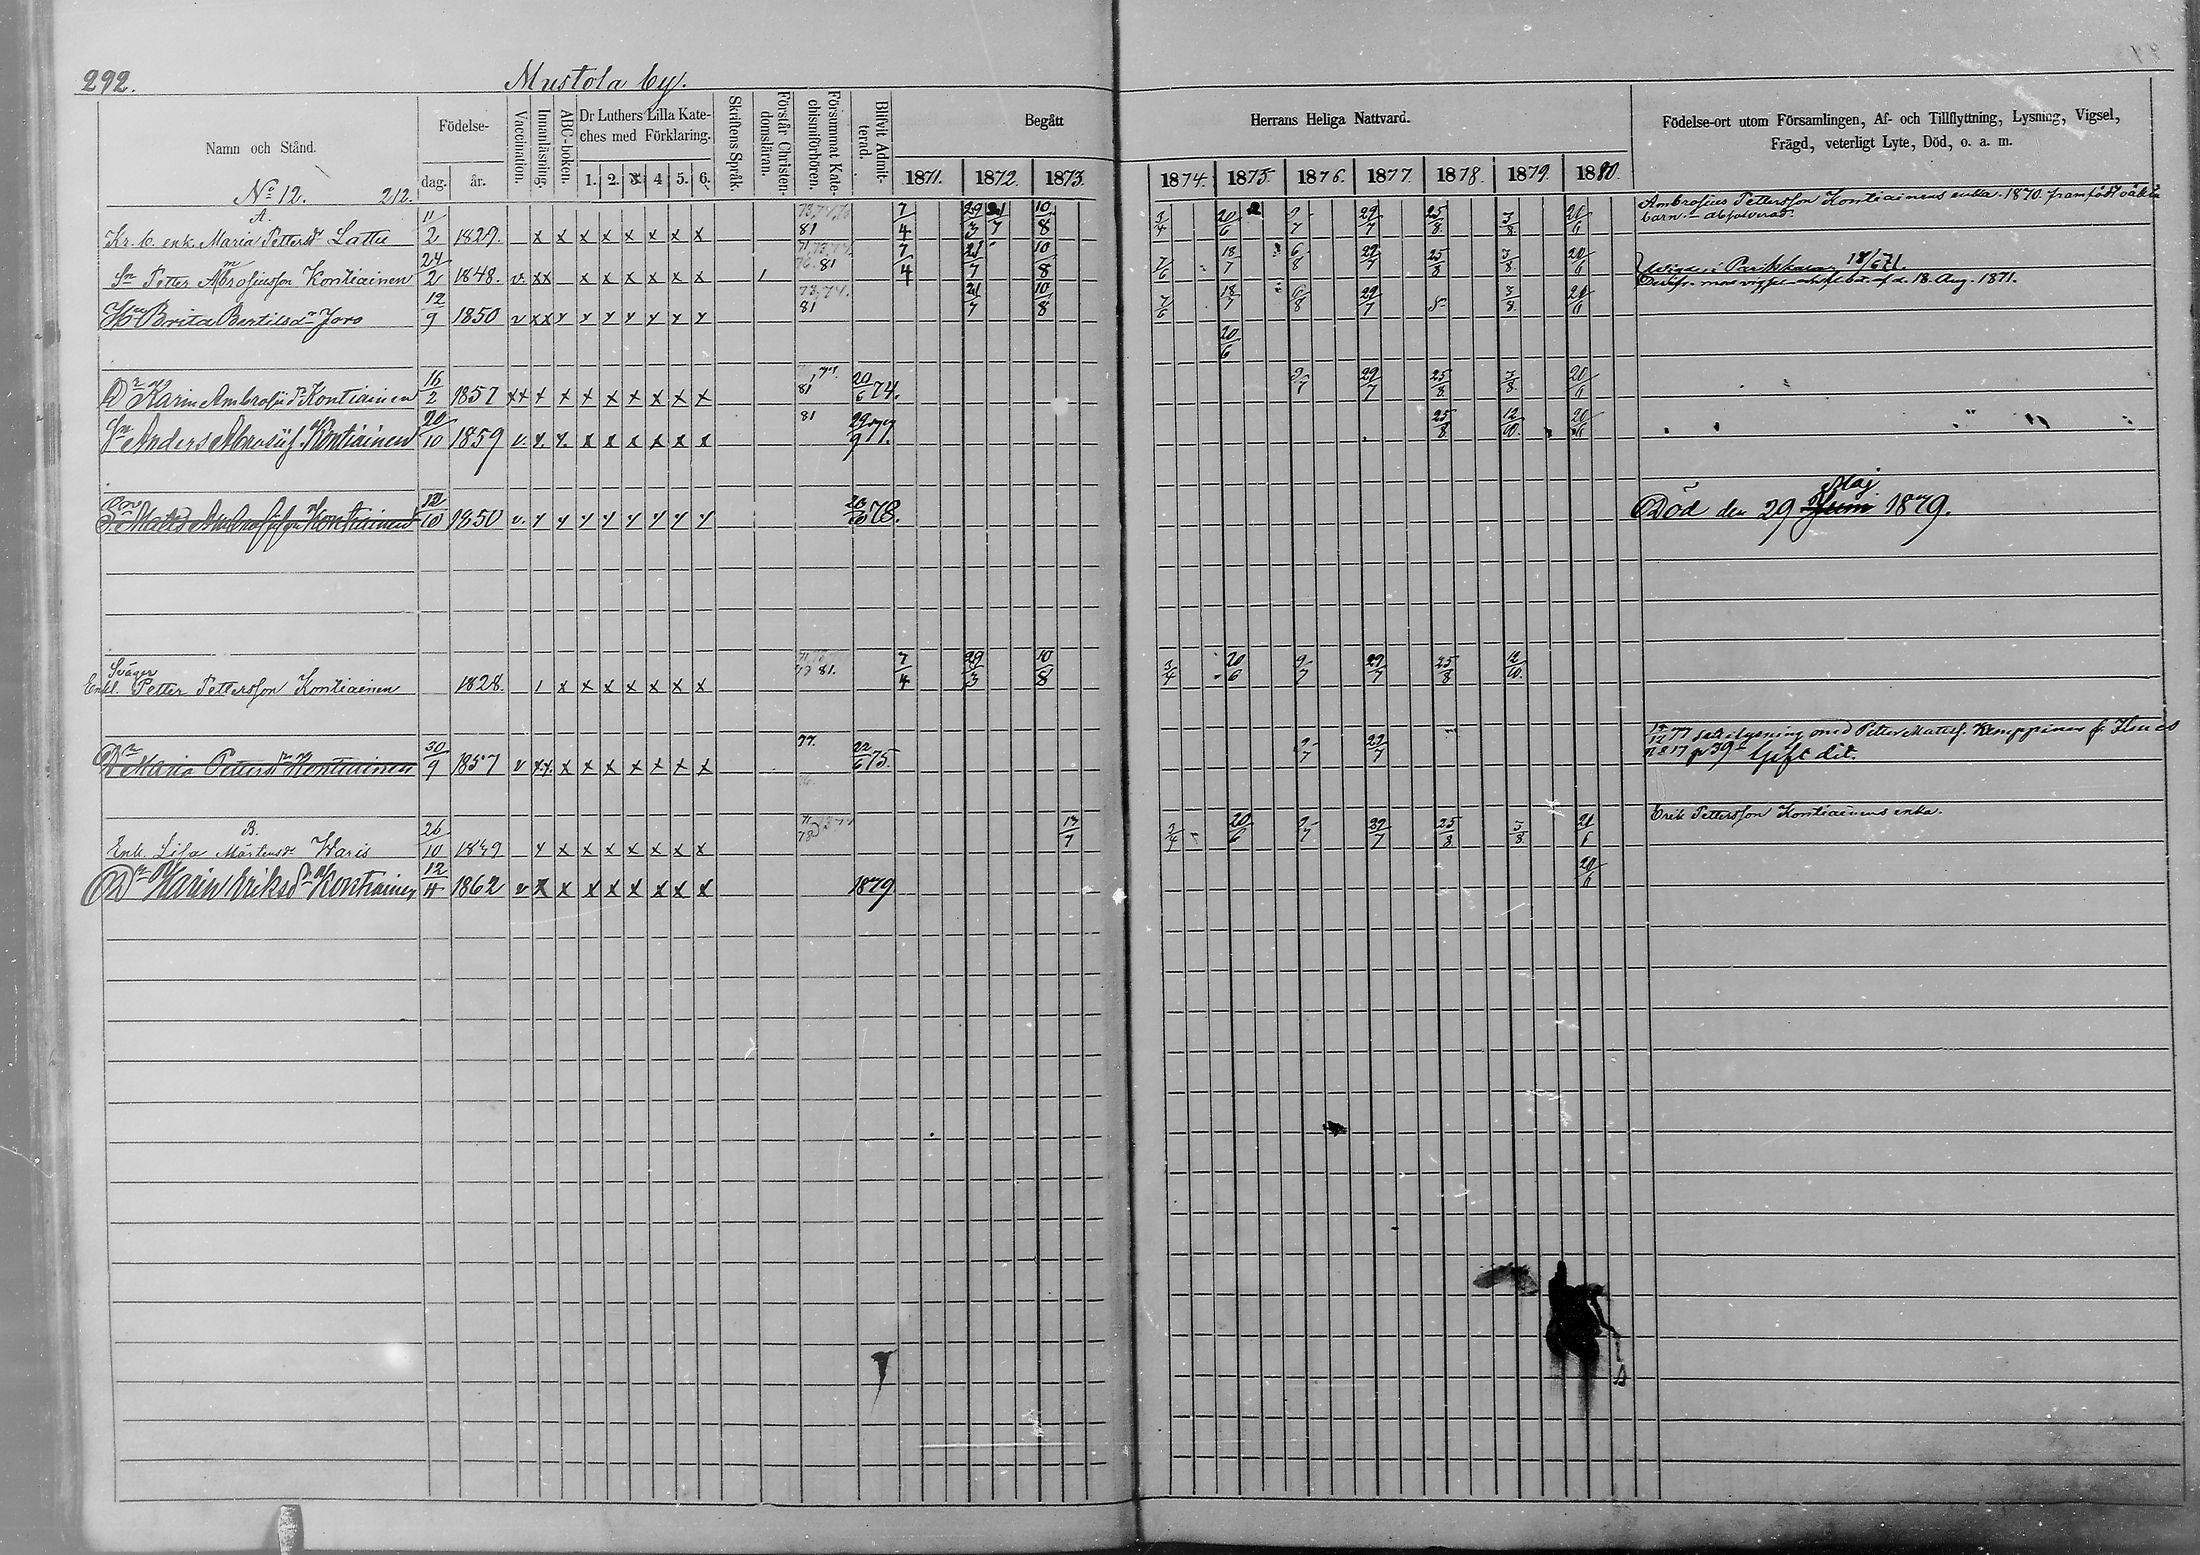 292.
Mustola by.
Namn och Stånd.
Födelse-
dag.
år.
Vaccination.
Innanläsning.
ABC-boken.
Dr Luthers Lilla Kate-
ches med Förklaring.
1. 2. 3. 4 5. 6.
Skriftens Språk.
Förstår Christen-
domsläran.
Försummat Kate-
chismiförhören.
Blifvit Admit-
terad.
Begått
Herrans Heliga Nattvard.
1871. 1872. 1873. 1874. 1875. 1876. 1877. 1878. 1879. 1880.
Födelse-ort utom Församlingen, Af- och Tillflyttning, Lysning, Vigsel,
Frägd, veterligt Lyte, Död, o. a. m.
No 12. 212.
A.
Kr. b. enk. Maria Pettersdr Lattu 11/2 1829. x x x x x x x x 81 7/4 29/3 21/7 10/8 3/4 20/6 9/7 29/7 25/8 3/8 20/6 Ambrosius Petterson Kontiainens enka. 1870 framfödt oäkta
barn - absolverad.
Sn Petter Ambrosiusson Kontiainen 24/2 1848. v. xx x x x x x x 81 7/4 21/7 10/8 7/6 18/7 6/8 29/7 25/8 3/8 20/6 Vigde i Parikkala 18/6 71.
Hu Brita Bertilsdr Joro 12/9 1850 v xx y y y y y y y 73, 74. 81 21/7 10/8 7/6 18/7 6/8 29/7 3/8 20/6 18 Aug. 1871.
20/6
Dr Karin Ambrosii dr Kontiainen 16/2 1857 xx x x x x x x x x 81 20/6 74. 9/7 29/7 25/8 3/8 20/6
Sn Anders Abrosiis. Kontiainen 20/10 1859 v. x. x. x x x x x x 81 29/9 77. 25/8 12/10. 20/6
Matts Ambrosiusson Kontiainen 12/10 1850 v. y y y y y y y y 78. Död den 29 Juni Maj 1879.
Svåger
Enkl. Petter Pettersson Kontiainen 1828 x x x x x x x 81. 7/4 29/3 10/8 3/4 20/6 9/7 29/7 25/8 12/10.
Dr Maria Pettersdr Kontiainen 30/9 1857 v xx. x x x x x x x 77. 22/6 75. 9/7 29/7 77 lysning med Petter Matts. Kemppinen fr. Ilmes
p 39 Gift dit.
B.
Enk. Lisa Mårtensdr Waris 26/10 1849 x x x x x x x x 13/7 3/4 20/6 9/7 29/7 25/8 3/8 20/6 Erik Petterson Kontiainens enka.
Dr Karin Eriksdr Kontiainen 12/4 1862 v x x x x x x x x 1879 20/6